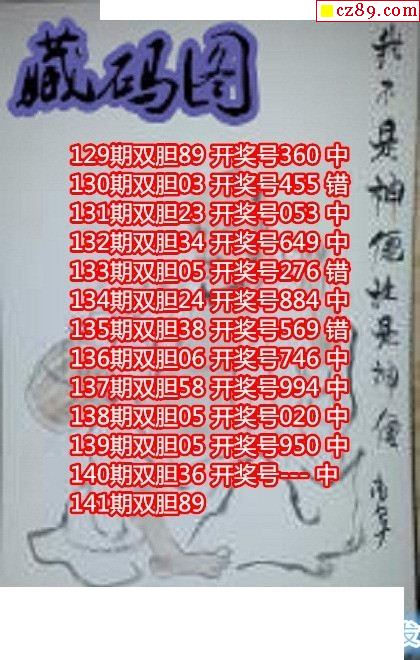 cz89.com
藏码图
129期双胆89 开奖号360 中
130期双胆03 开奖号455 错
131期双胆23 开奖号053 中
132期双胆34 开奖号649 中
133期双胆05 开奖号276 错
134期双胆24 开奖号884 中
135期双胆38 开奖号569 错
136期双胆06 开奖号746 中
137期双胆58 开奖号994 中
138期双胆05 开奖号020 中
139期双胆05 开奖号950 中
140期双胆36 开奖号--- 中
141期双胆89
我不是神仙
是神仙